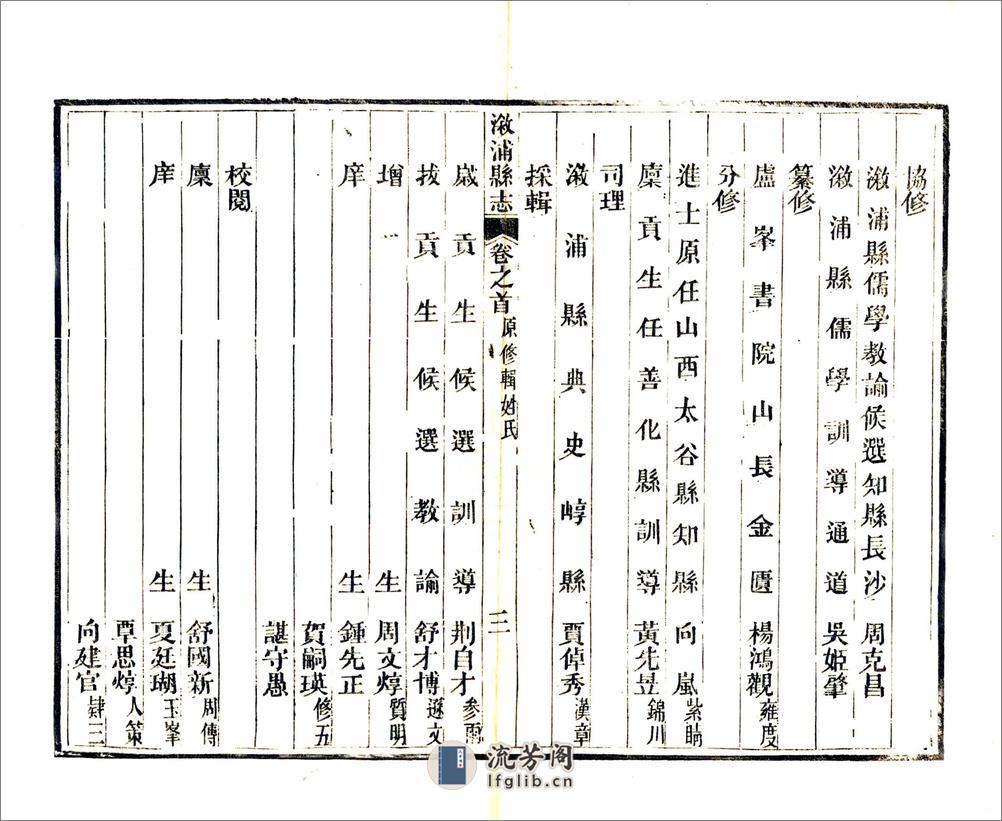 協修
漵浦縣儒學教諭候選知縣長沙周克昌
漵浦縣儒學訓導通道吳姬肇
纂修
盧峯書院山長金匱楊鴻觀雍度
分修
進士原任山西太谷縣知縣向嵐紫晴
廩貢生任善化縣訓導黃先昱錦川
司理
漵浦縣典史崞縣賈倬秀漢章
採輯
漵浦縣志 卷之首 原修輯姓氏 三
歲貢生候選訓導荆自才參雨
拔貢生候選教諭舒才博遜文
增生周文焞質明
庠生鍾先正
賀嗣瑛修五
諶守愚
校閱
廩生舒國新周傳
庠生夏廷瑚玉峯
覃思焞人策
向建官肆三
流芳阁
lfglib.cn